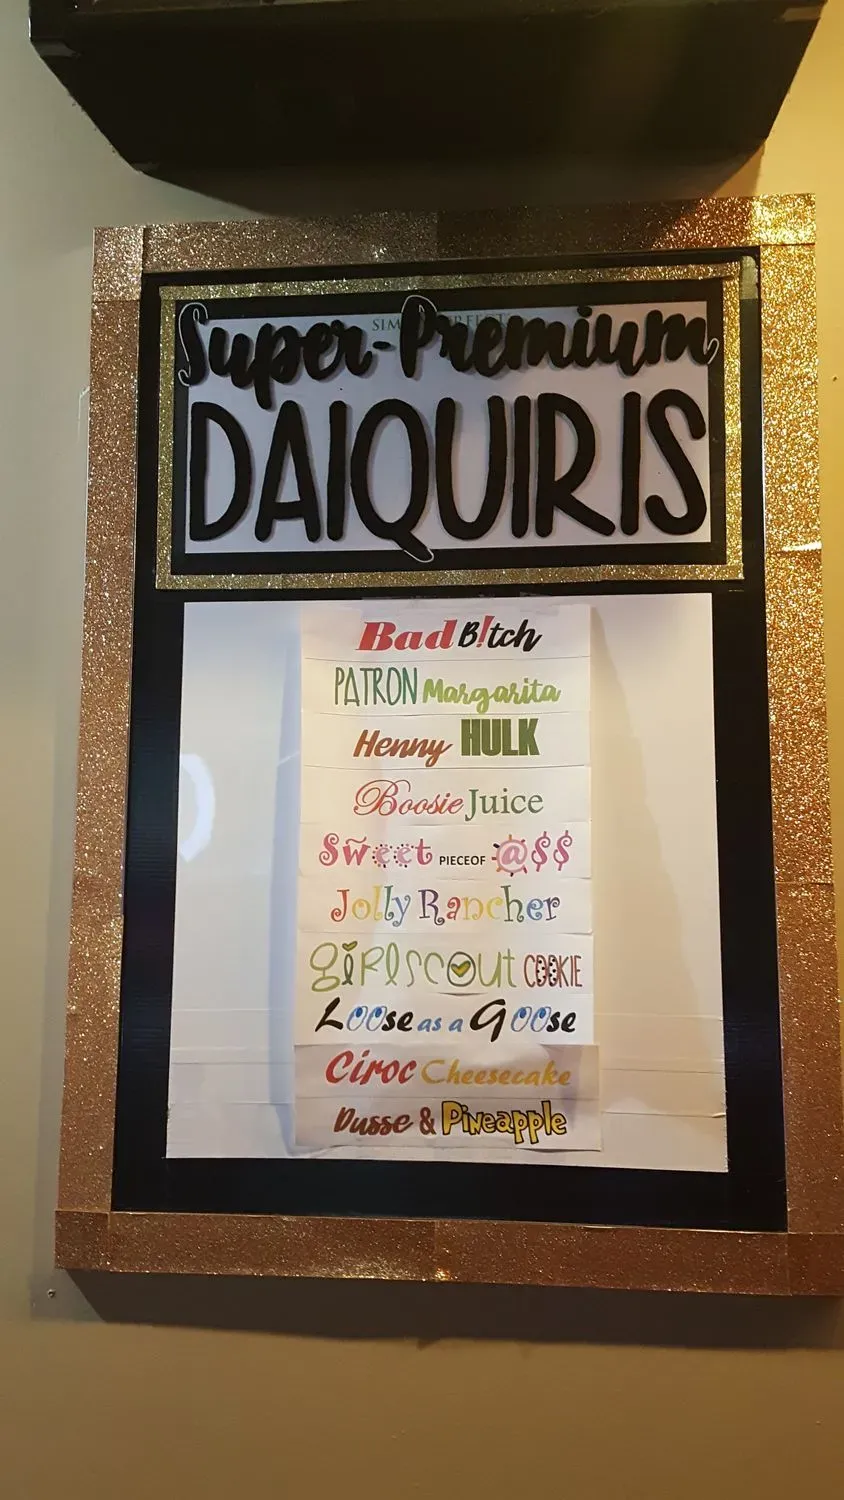 Super-Premium
DAIQUIRIS
Bad B!tch
PATRON Margarita
Henny HULK
Boosie Juice
Sweet PIECEOF @$$
Jolly Rancher
girlscout COOKIE
Loose as a Goose
Ciroc Cheesecake
Dusse & Pineapple